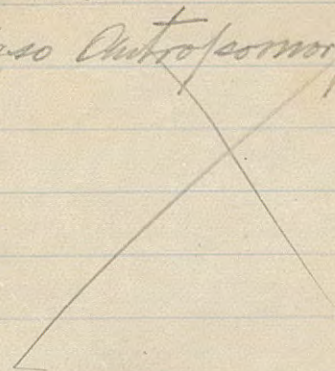 so Antropomor